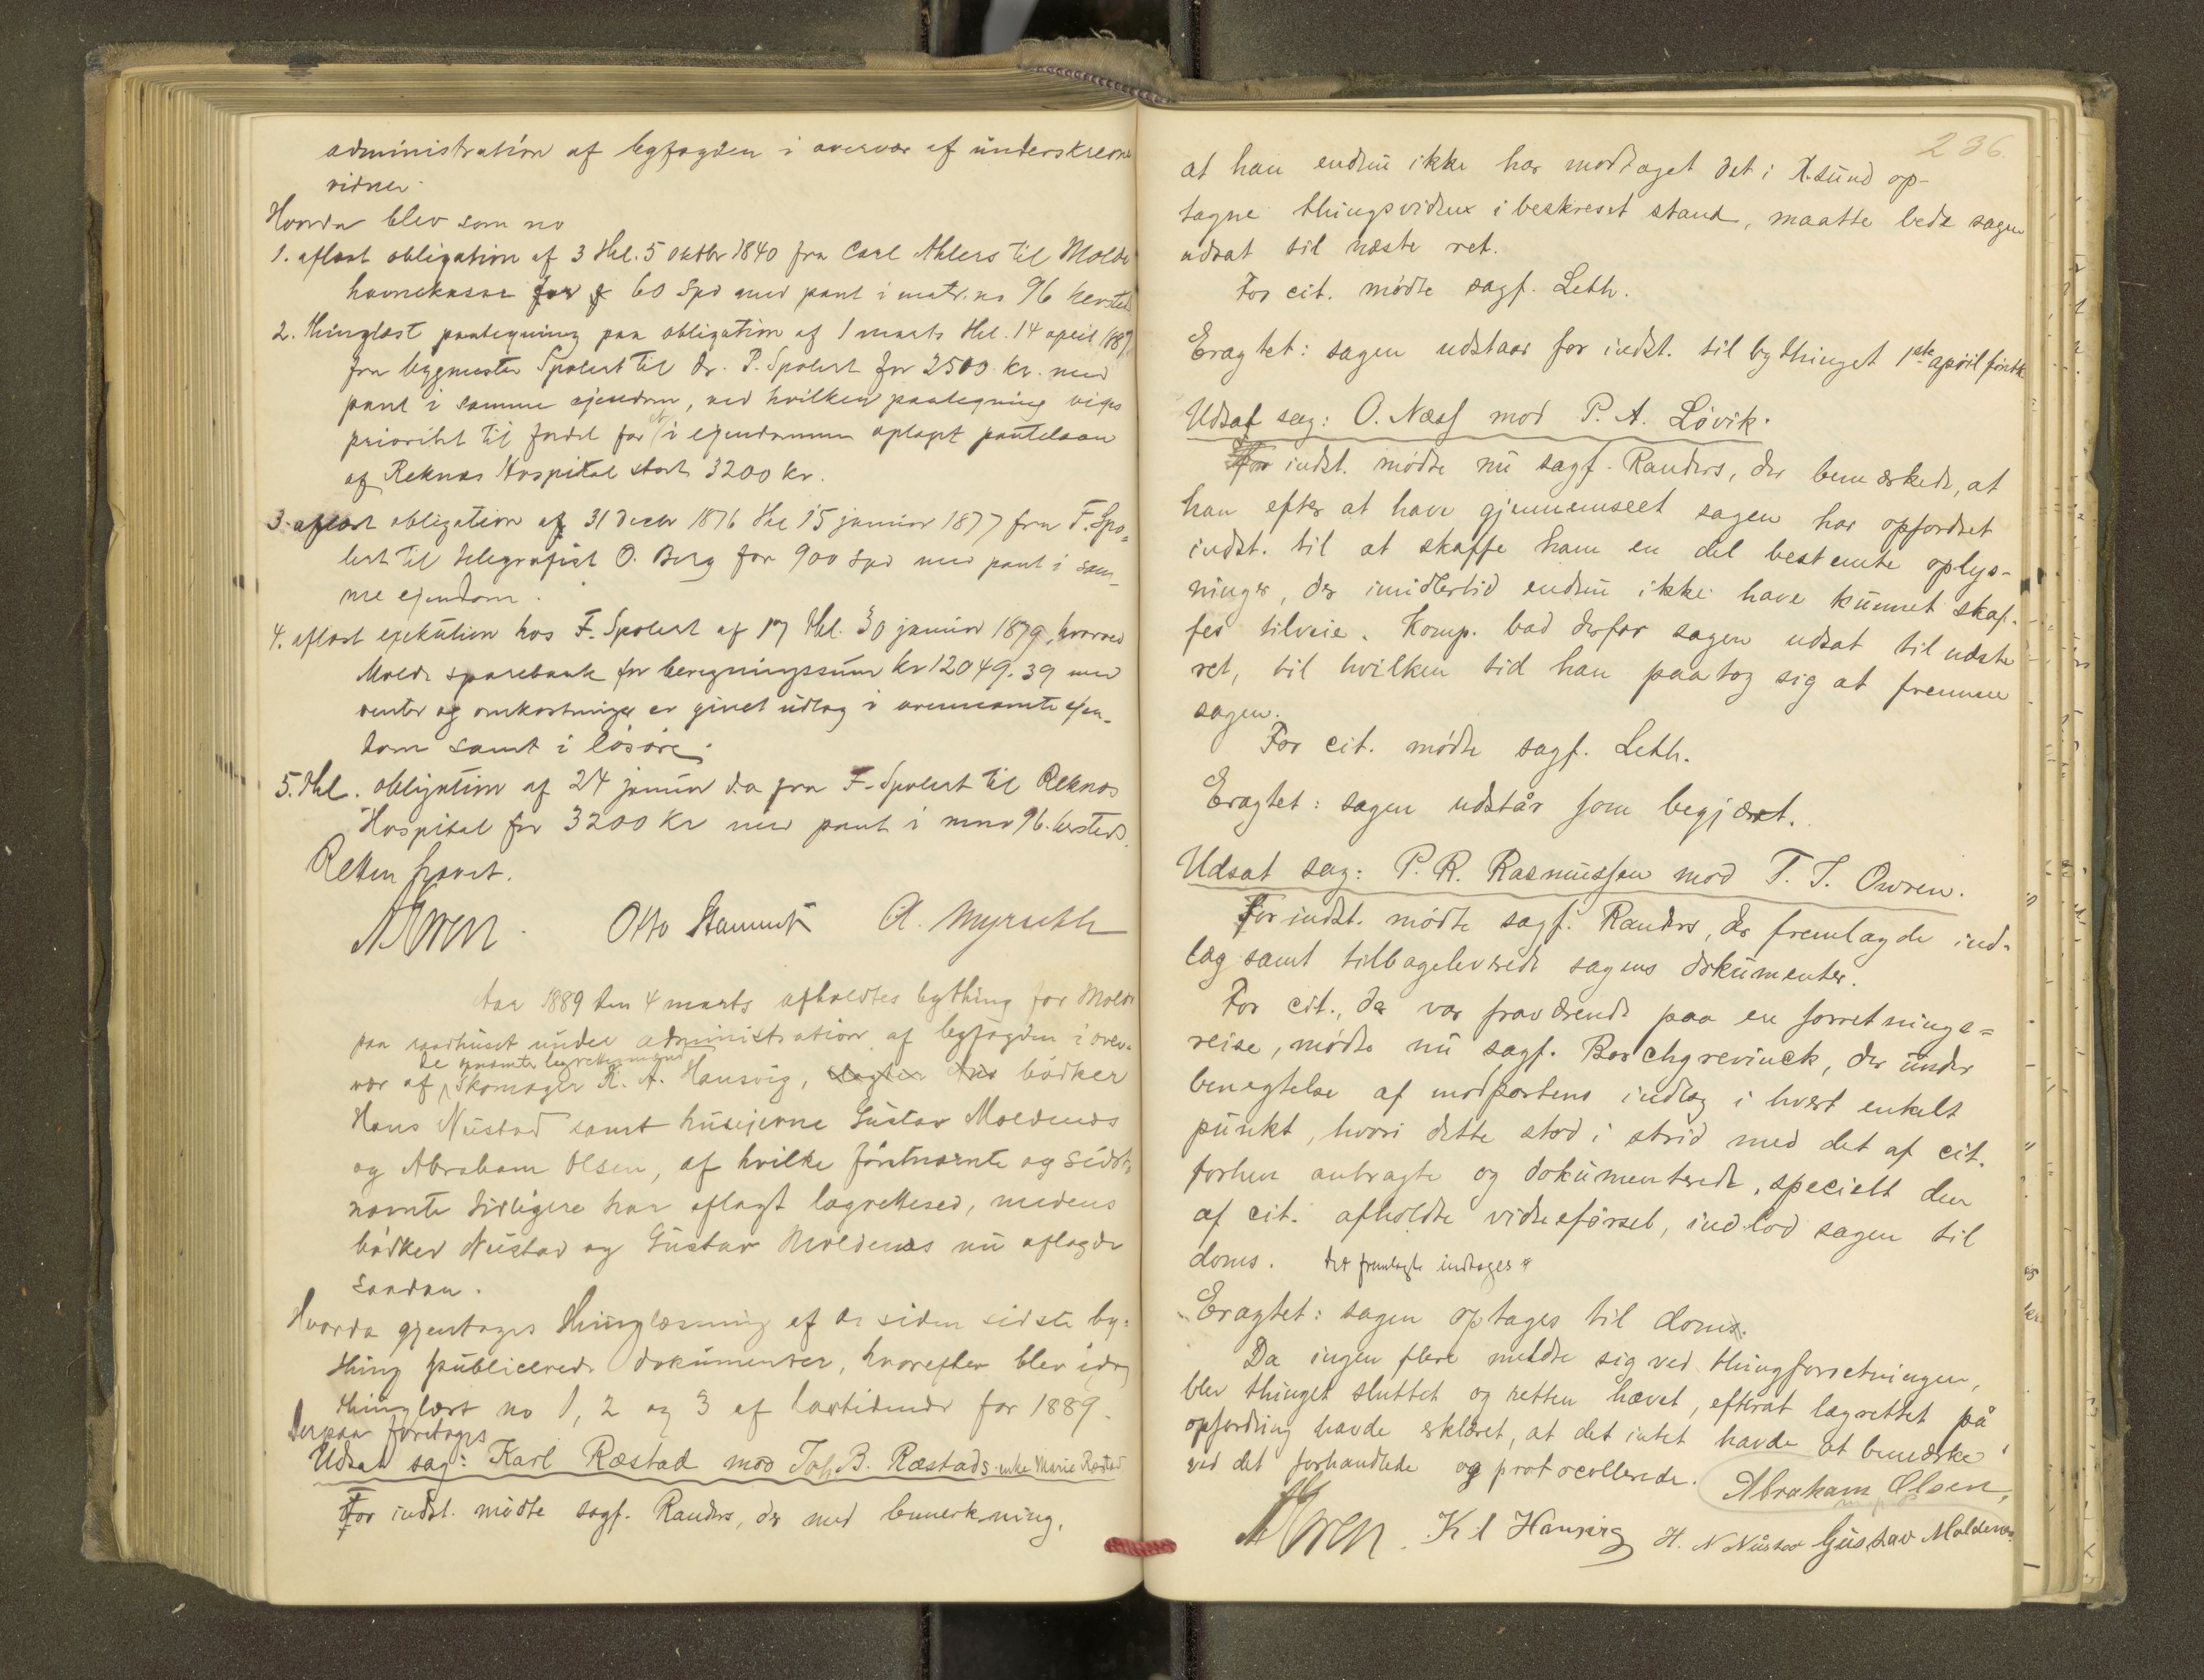 administration af byfogden i overvær af underskrevne
vidner.
Hvorda blev som no
1. aflæst obligation af 3 thl. 5 oktbr 1840 fra Carl Ahlers til Molde
havnekasse for 60 Spd med pant i matr. no 96 hersteds
2. thinglæst paategning paa obligation af 1 marts thl. 14 april 187
fra bygmester Spolert til dr. P. Spolert for 2500 kr. med
pant i samme ejendom, ved hvilken paategning viges
prioritet til fordel for et i ejendommen optaget pantelaan
af Reknæs Hospital stort 3200 kr.
3. aflæst obligation af 31 decbr 1876 thl 15 januar 1877 fra F. Spo-
lert til telegrafist O. Berg for 900 Spd med pant i sam-
me ejendom.
4. aflæst exekution hos F. Spolert af 17 thl. 30 januar 1879, hvorved
Molde sparebank for beregningssum kr 12049.39 med
renter og omkostninger er givet udlæg i ovennævnte ejen-
dom samt i løsøre.
5. thl. obligation af 24 januar d.a fra F. Spolert til Reknæs
Hospital for 3200 kr med pant i mno 96. hersteds.
Retten hævet.
Otto Stammnes A. Myrseth
Aar 1889 den 4 marts afholdtes bything for Molde
paa raadhuset under administration af byfogden i over-
de opnævnte lagrettesmænd
vær af Skomager K. A. Hansvig, bødker
Hans Nustad samt husejerne Gustav Moldenæs
og Abraham Olsen, af hvilke førstnævnte og sidst-
nævnte tidligere har aflagt lagrettesed, medens
bødker Nustad og Gustav Moldenæs nu aflagde
saadan.
Hvorda gjentages thinglæsning af de siden sidste by-
thing publicerede dokumenter, hvorefter blev idag
thinglæst no 1, 2 og 3 af lovtidende for 1889.
Derpaa foretages
Udsat sag: Karl Ræstad mod Joh. B. Ræstads enke Marie Ræstad
For indst. mødte sagf. Randers, der med bemerkning,
236.
at han endnu ikke har modtaget det i X.sund op-
tagne thingsvidne i beskrevet stand, maatte bede sagen
udsat til næste ret.
For cit. mødte sagf. Leth.
Eragtet: sagen udstaar for indst. til bythinget 1ste april førstk.
Udsat sag: O. Næss mod P. A. Løvik.
For indst. mødte nu sagf. Randers, der bemærkede, at
han efter at have gjennemseet sagen har opfordret
indst. til at skaffe ham en del bestemte oplys-
ninger, der imidlertid endnu ikke have kunnet skaf-
fes tilveie. Komp. bad derfor sagen udsat til næste
ret, til hvilken tid han paatog sig at fremme
sagen.
For cit. mødte sagf. Leth.
Eragtet: sagen udstår som begjæret.
Udsat sag: P. R. Rasmussen mod T. T. Owren.
For indst. mødte sagf. Randers, der fremlagde ind-
læg samt tilbageleverede sagens dokumenter.
For cit., der var fraværende paa en forretnings-
reise, mødte nu sagf. Borchgrevinck, der under
benegtelse af modpartens indlæg i hvert enkelt
punkt, hvori dette stod i strid med det af cit.
forhen anbragte og dokumenterede, specielt den
af cit. afholdte vidneførsel, indlod sagen til
doms. Det fremlagte indtages
Eragtet: sagen optages til doms.
Da ingen flere meldte sig ved thingforretningen,
blev thinget sluttet og retten hævet, efterat lagrettet på
opfordring havde erklæret, at det intet havde at bemærke
ved det forhandlede og protocollerede. Abraham Olsen,
K A Hansvig H. N Nustad Gustav Moldenæs